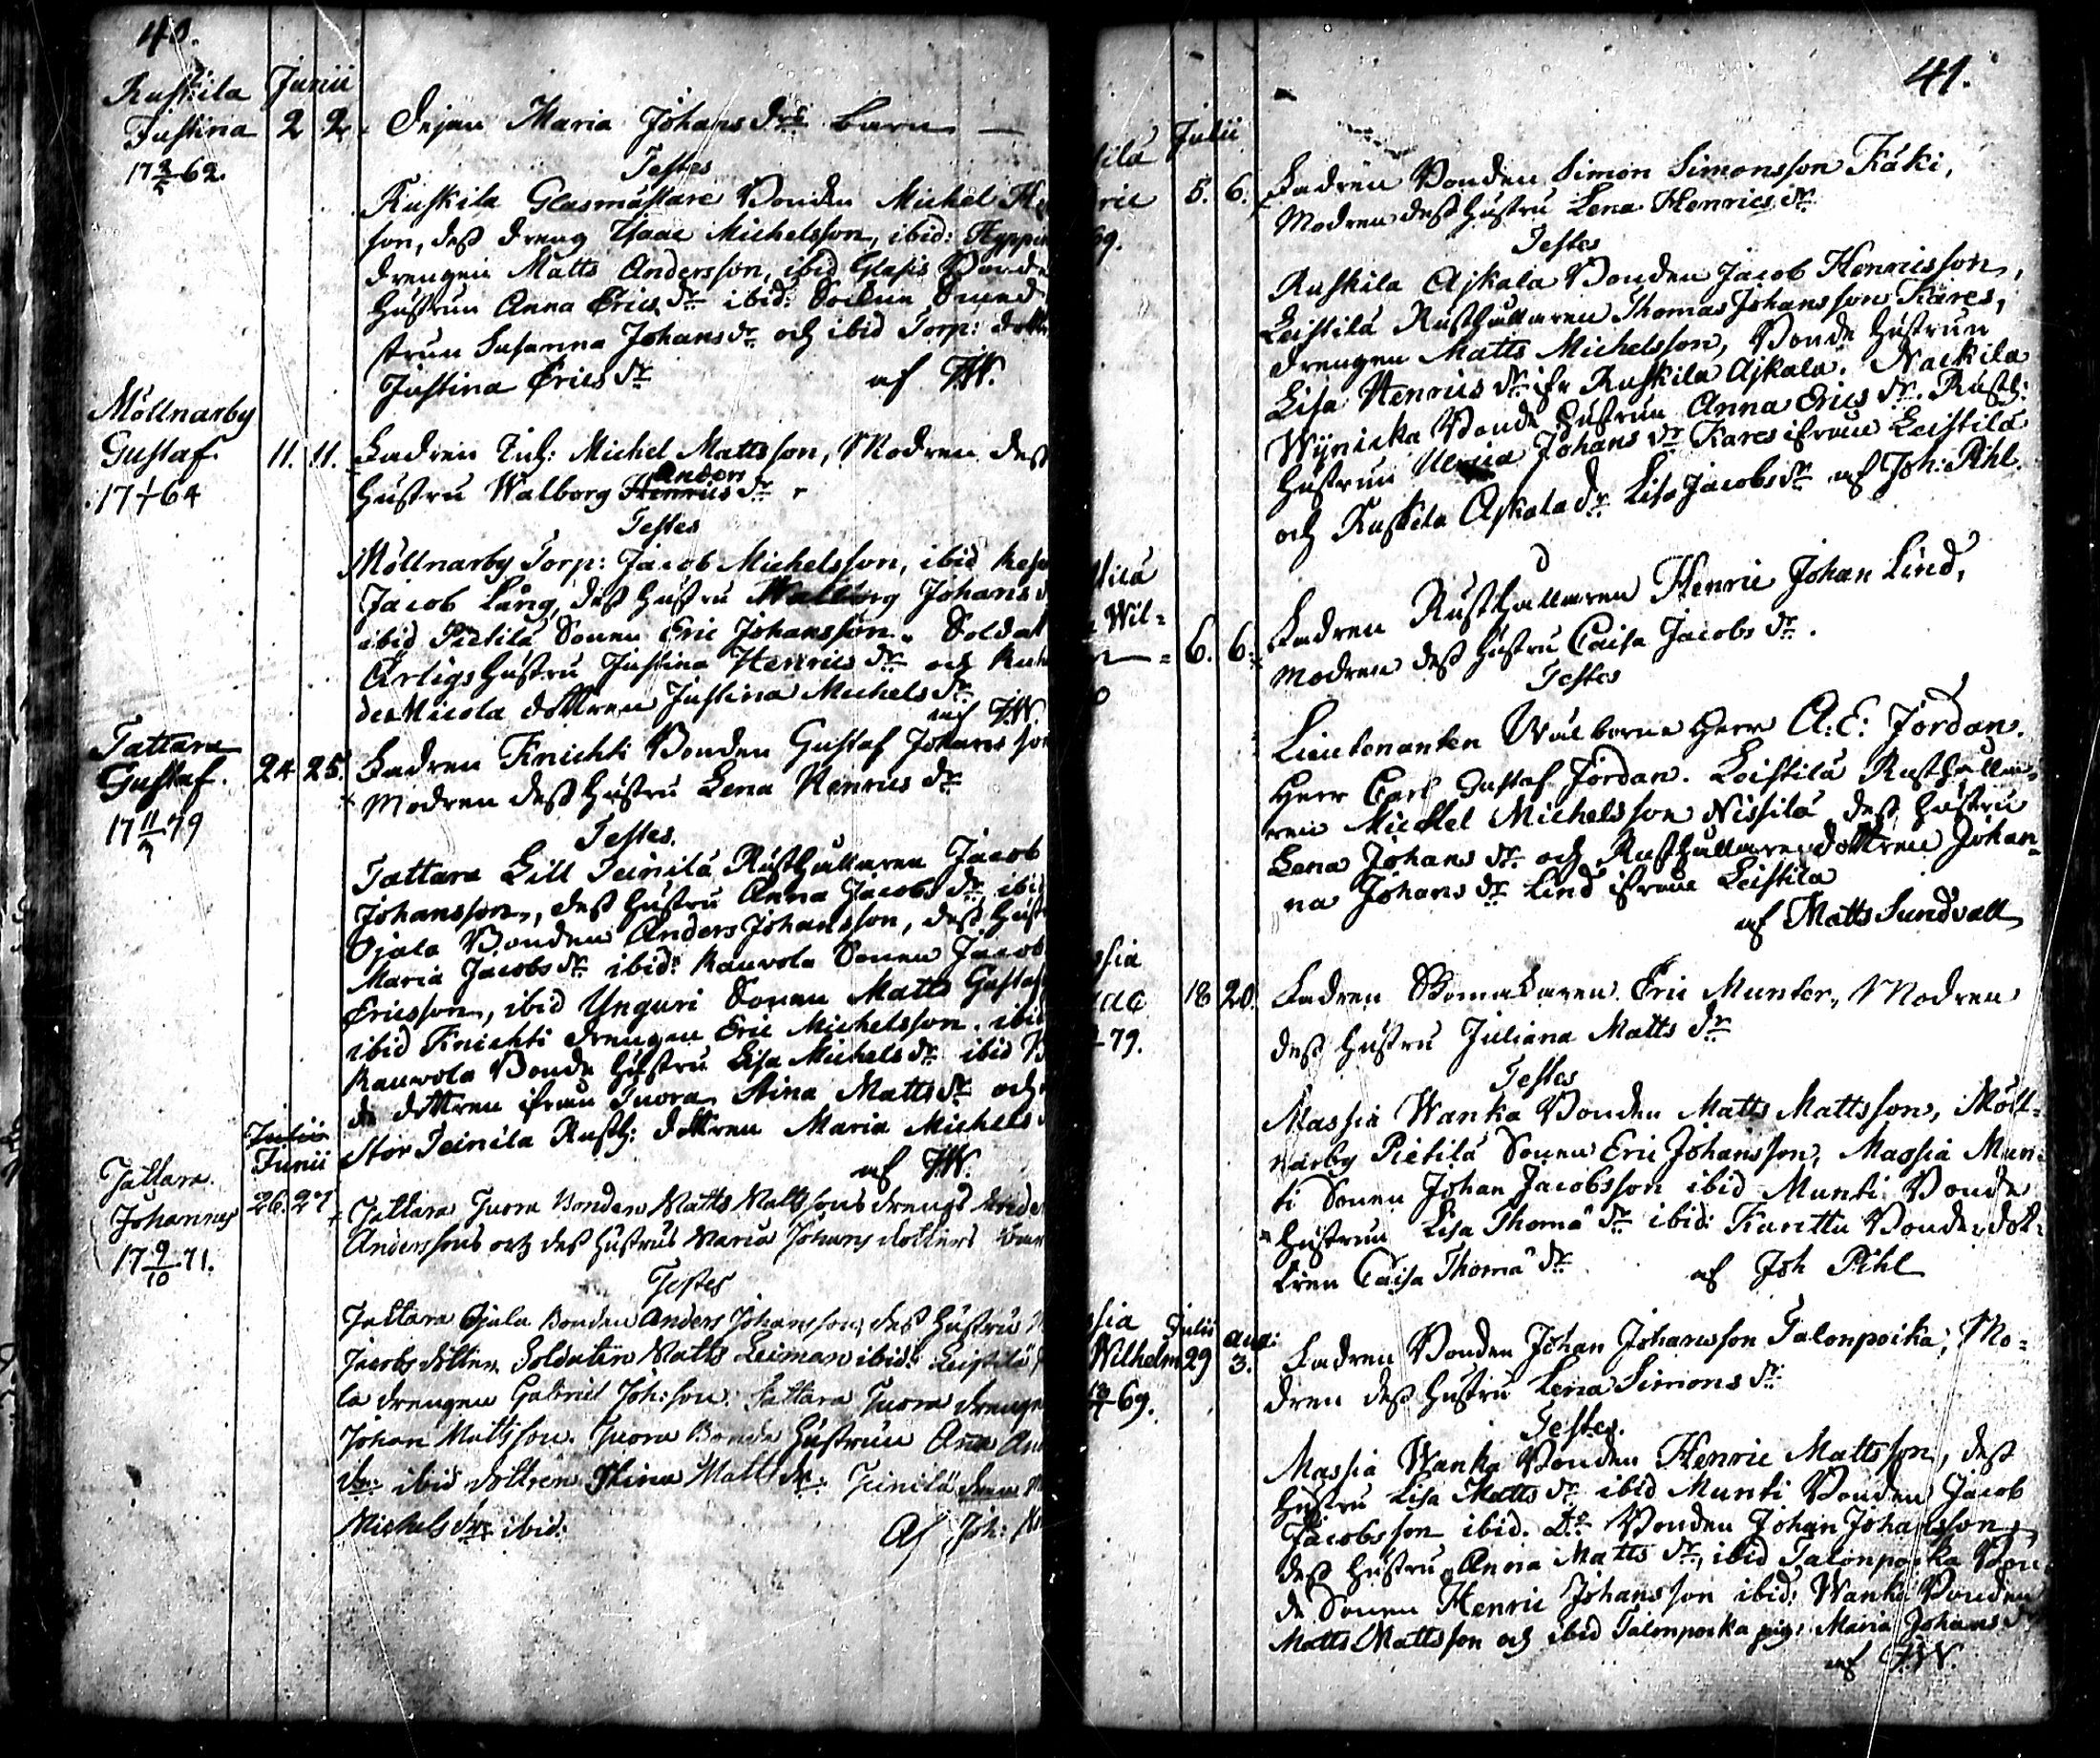 40.
Ruskila Junii
Justina 2 2. Pigan Maria Johans drs barn —
17 2/5 62.
Testes
Ruskila Glasmästare Bonden Michel
son, dess dreng Isaac Michelsson, ibid:
drengen Matts Andersson, ibid Glasis Bonde
Hustrun Anna Erics dr ibid: Socken Smed
strun Susanna Johans dr och ibid Torp:
Justina Erics dr af JW.
Möllnarby
Gustaf 11. 11. Fadren Inh: Michel Mattsson, Modren dess
17 64 Hustru Walborg Anders dr
Testes
Möllnarby Torp: Jacob Michelsson, ibid
Jacob Lång, dess hustru Walborg Johans
ibid Pietilä Sonen Eric Johansson. Soldat
Ärligs hustru Justina Henrics dr och
Nicola dottren Justina Michels dr
af JW
Tattara
Gustaf. 24 25. Fadren Knichti Bonden Gustaf Johansson
17 11/7 79 Modren dess hustru Lena Henrics dr
Testes.
Tattara Lill Teinilä Rusthållaren Jacob
Johansson, dess hustru Anna Jacobs dr, ibid
Ojala Bonden Anders Johansson, dess
Maria Jacobs dr ibid: Kauvola Sonen Jacob
Ericsson, ibid Unguri Sonen Matts
ibid Knichti drengen Eric Michelsson. ibid
Kauvola Bonde hustru Lisa Michels dr ibid
de dottren ifrån Inora Stina Matts dr och
Stor Teinilä Rusth: dottren Maria Michels
af JW.
Junii
Tattara
Johannes 26. 27 Tattara Juora Bonden Matts Mattssons drengs
17 9/10 71. Anderssons och dess hustrus Maria Johans dotters
Testes
Tattara Ojala Bonden Anders Johansson, dess Hustru
Jacobs dotter. Soldaten Matts Leiman ibid: Leistilä
la drengen Gabriel Joh:son. Tattara Juora drengen
Johan Mattsson. Juora Bonde Hustrun Anna
dr: ibid dottren Stina Matts dr. Teinilä
Michels dr ibid: Af Joh:
41.
Julii
5. 6. Fadren Bonden Simon Simonsson Käki,
69. Modren dess hustru Lena Henrics dr
Testes
Ruskila Ajkala Bonden Jacob Henricsson,
Leistilä Rusthållaren Thomas Johansson Kares,
drengen Matts Michelsson, Bonde hustrun
Lisa Henrics dr ifr Ruskila Ajkala. Nackila
Wynicka Bonde hustrun Anna Erics dr. Rusth:
hustrun Ulrica Johans dr Kares ifrån Leistilä
och Ruskila Ajkala dr Lisa Jacobs dr af Joh: Pihl.
Wil=
6. 6. Fadren Rusthållaren Henric Johan Lind,
Modren dess hustru Caisa Jacobs dr.
Testes
Lieutenanten Wälborne Herr A: E: Jordan.
Herr Carl Gustaf Jordan. Leistilä Rusthålla=
ren Michel Michelsson Nissilä dess hustru
Lena Johans dr och Rusthållaredottren Johan=
na Johans dr Lind ifrån Leistilä
af Matts Sundvall
18 20. Fadren Skomakaren Eric Munter, Modren
79. dess hustru Juliana Matts dr
Testes
Massia Wanka Bonden Matts Mattsson, Möll=
narby Pietilä Sonen Eric Johansson, Massia Mun=
ti Sonen Johan Jacobsson ibid Munti Bonde
hustrun Lisa Thomæ dr ibid: Kunttu Bondedot=
tren Caisa Thomæ dr af Joh Pihl
Julii Aug:
Wilhelm 29 3. Fadren Bonden Johan Johansson Talonpoika, Mo=
69. dren dess hustru Lena Simons dr
Testes.
Massia Wanka Bonden Henric Mattsson, dess
hustru Lisa Matts dr ibid Munti Bonden Jacob
Jacobsson ibid. Do Bonden Johan Johansson,
dess hustru Anna Matts dr, ibid Talonpoika Bon=
de Sonen Henric Johansson ibid: Wanka Bonden
Matts Mattsson och ibid Talonpoika pig: Maria Johans dr
af JW.